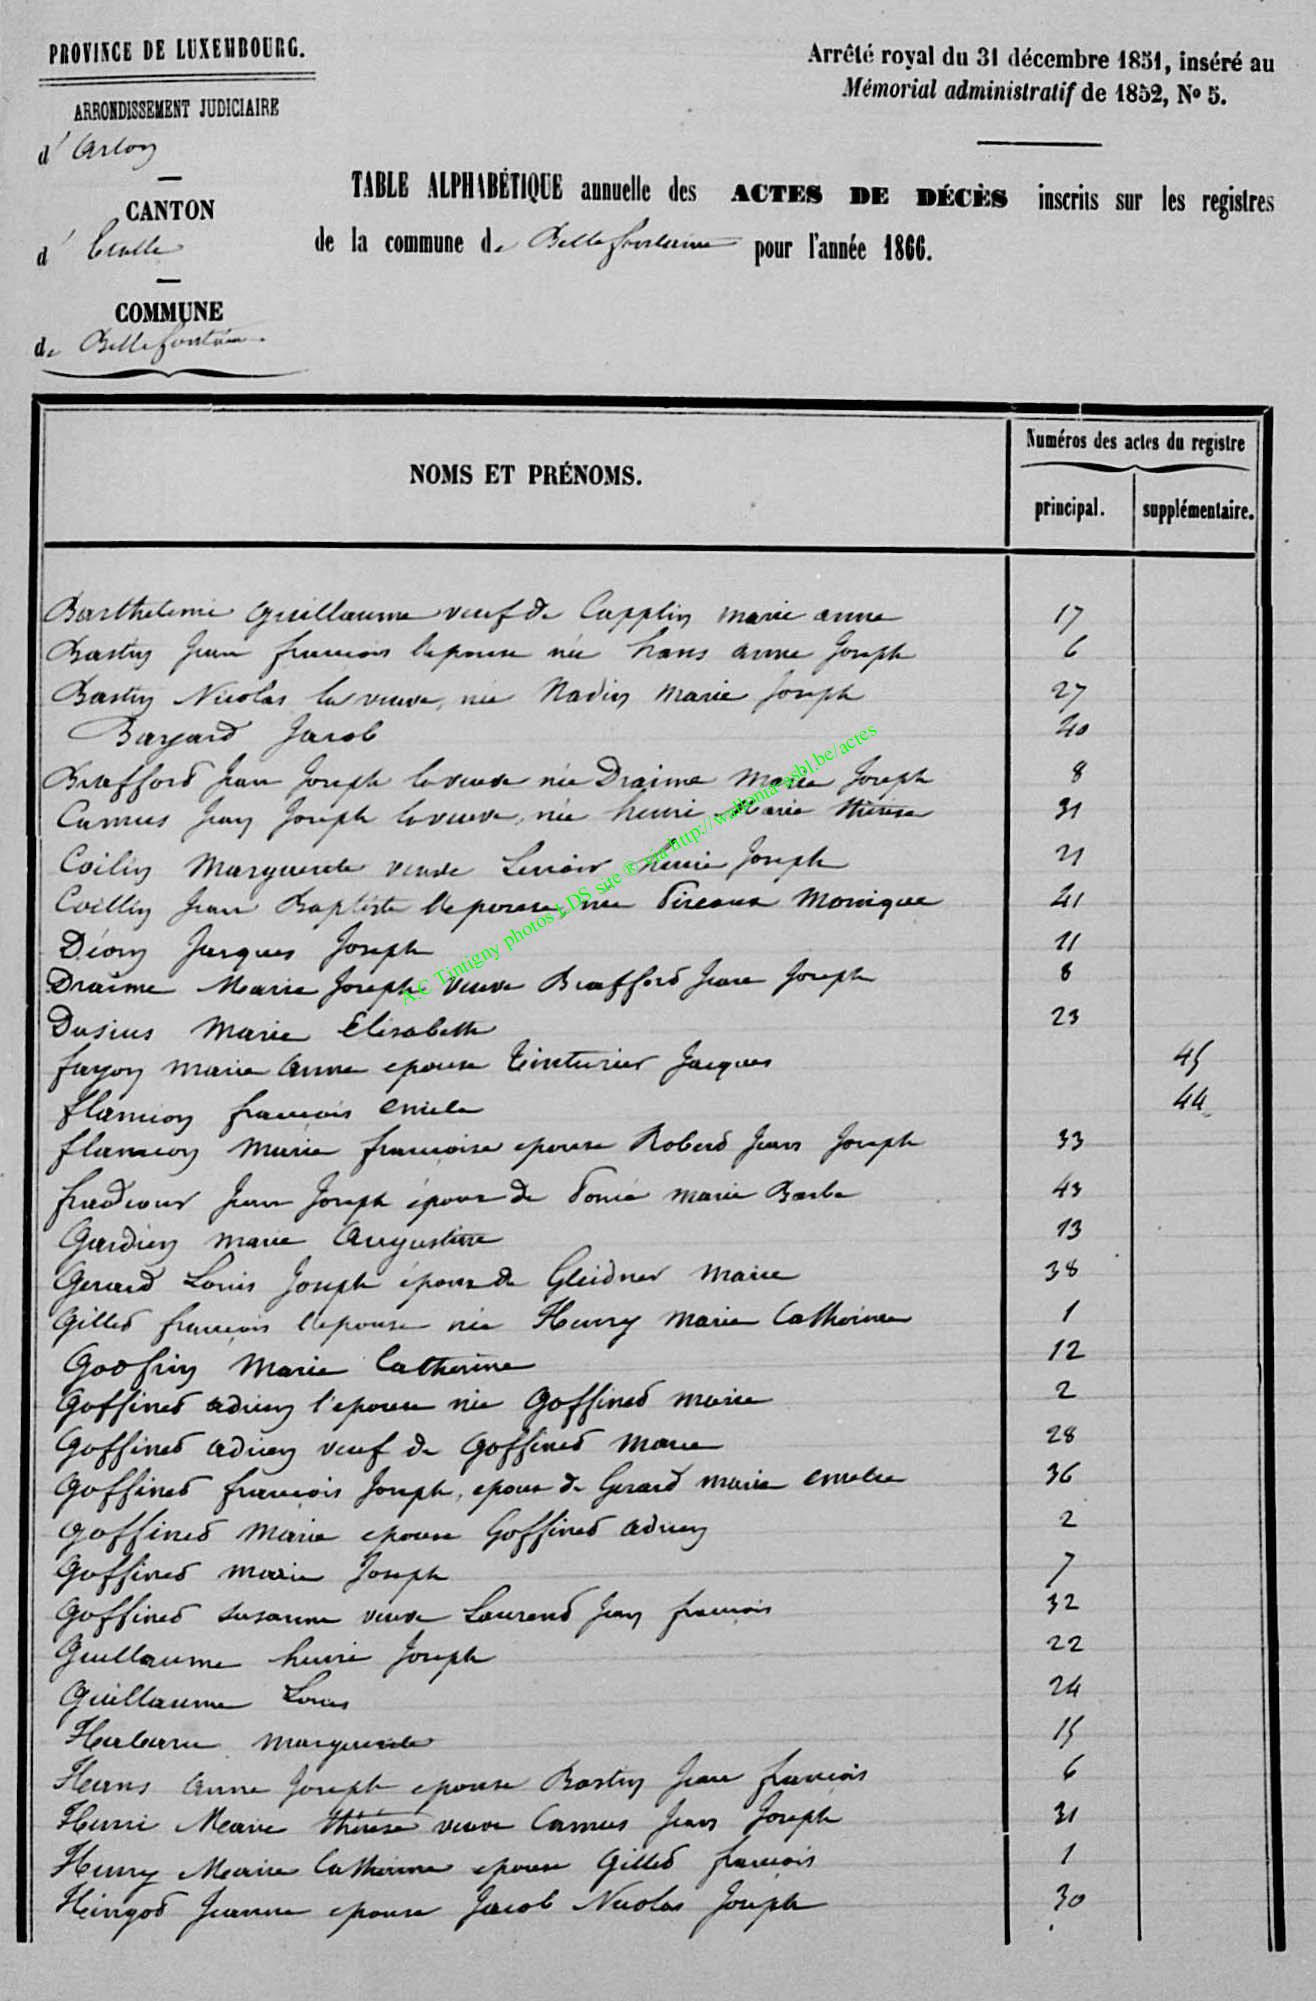 PROVINCE DE LUXEMBOURG.
ARRONDISSEMENT JUDICIAIRE
d'Arlon
CANTON
d'Etalle
COMMUNE
de Bellefontaine
Arrêté royal du 31 décembre 1851, inséré au
Mémorial administratif de 1852, No 5.
TABLE ALPHABÉTIQUE annuelle des ACTES DE DÉCÈS inscrits sur les registres
de la commune de Bellefontaine pour l'année 1866.
NOMS ET PRÉNOMS.
Numéros des actes du registre
principal. supplémentaire.
Barthelemi Guillaume veuf de Capplin marie anne 17
Bastin Jean francois l'epouse née hans anne Joseph 6
Bastin Nicolas la veuve, née Nadin Marie Joseph 27
Bayard Jacob 40
Brafford Jean Joseph la veuve née Draime Marie Joseph 8
Camus Jean Joseph la veuve, née henri Marie thérèse 31
Coilin Marguerite veuve Lenoir henri Joseph 21
Coillin Jean Baptiste l'epouse née Pireaux Monique 41
Déom Jacques Joseph 11
Draime Marie Joseph veuve Brafford Jean Joseph 8
Dusius Marie Elisabeth 23
fayon marie anne epouse Tinturier Jacques 45
flamion francois emile 44
flamion Marie francoise epouse Robert Jean Joseph 33
fradcour Jean Joseph époux de Poncé marie Barbe 43
Gardien marie Augustine 13
Gerard Louis Joseph époux de Gleidner Marie 38
Gillet françois l'epouse née Henry Marie Catherine 1
Godfrin Marie Catherine 12
Goffinet adrien l'epouse née Goffinet marie 2
Goffinet adrien veuf de Goffinet Marie 28
Goffinet francois Joseph, epoux de Gerard marie emelie 36
Goffinet Marie epouse Goffinet adrien 2
Goffinet marie Joseph 7
Goffinet susanne veuve Laurent Jean francois 32
Guillaume henri Joseph 22
Guillaume Louis 24
Habaru Marguerite 15
Hans anne Joseph epouse Bastin Jean francois 6
Henri Marie thérèse veuve Camus Jean Joseph 31
Henry Marie Catherine epouse Gillet francois 1
Hingot Jeanne epouse Jacob Nicolas Joseph 30
A.C Tintigny photos LDS site ® via http://wallonia-asbl.be/actes